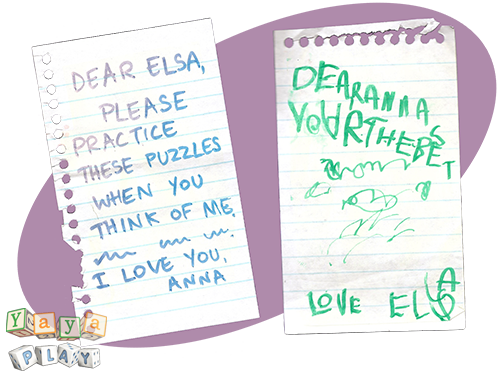 DEAR ELSA,
PLEASE
PRACTICE
THESE PUZZLES
WHEN YOU
THINK OF ME.
I LOVE YOU,
ANNA
DEARANNA
YOURTHEBEST
LOVE ELSA
Yaya
PLAY